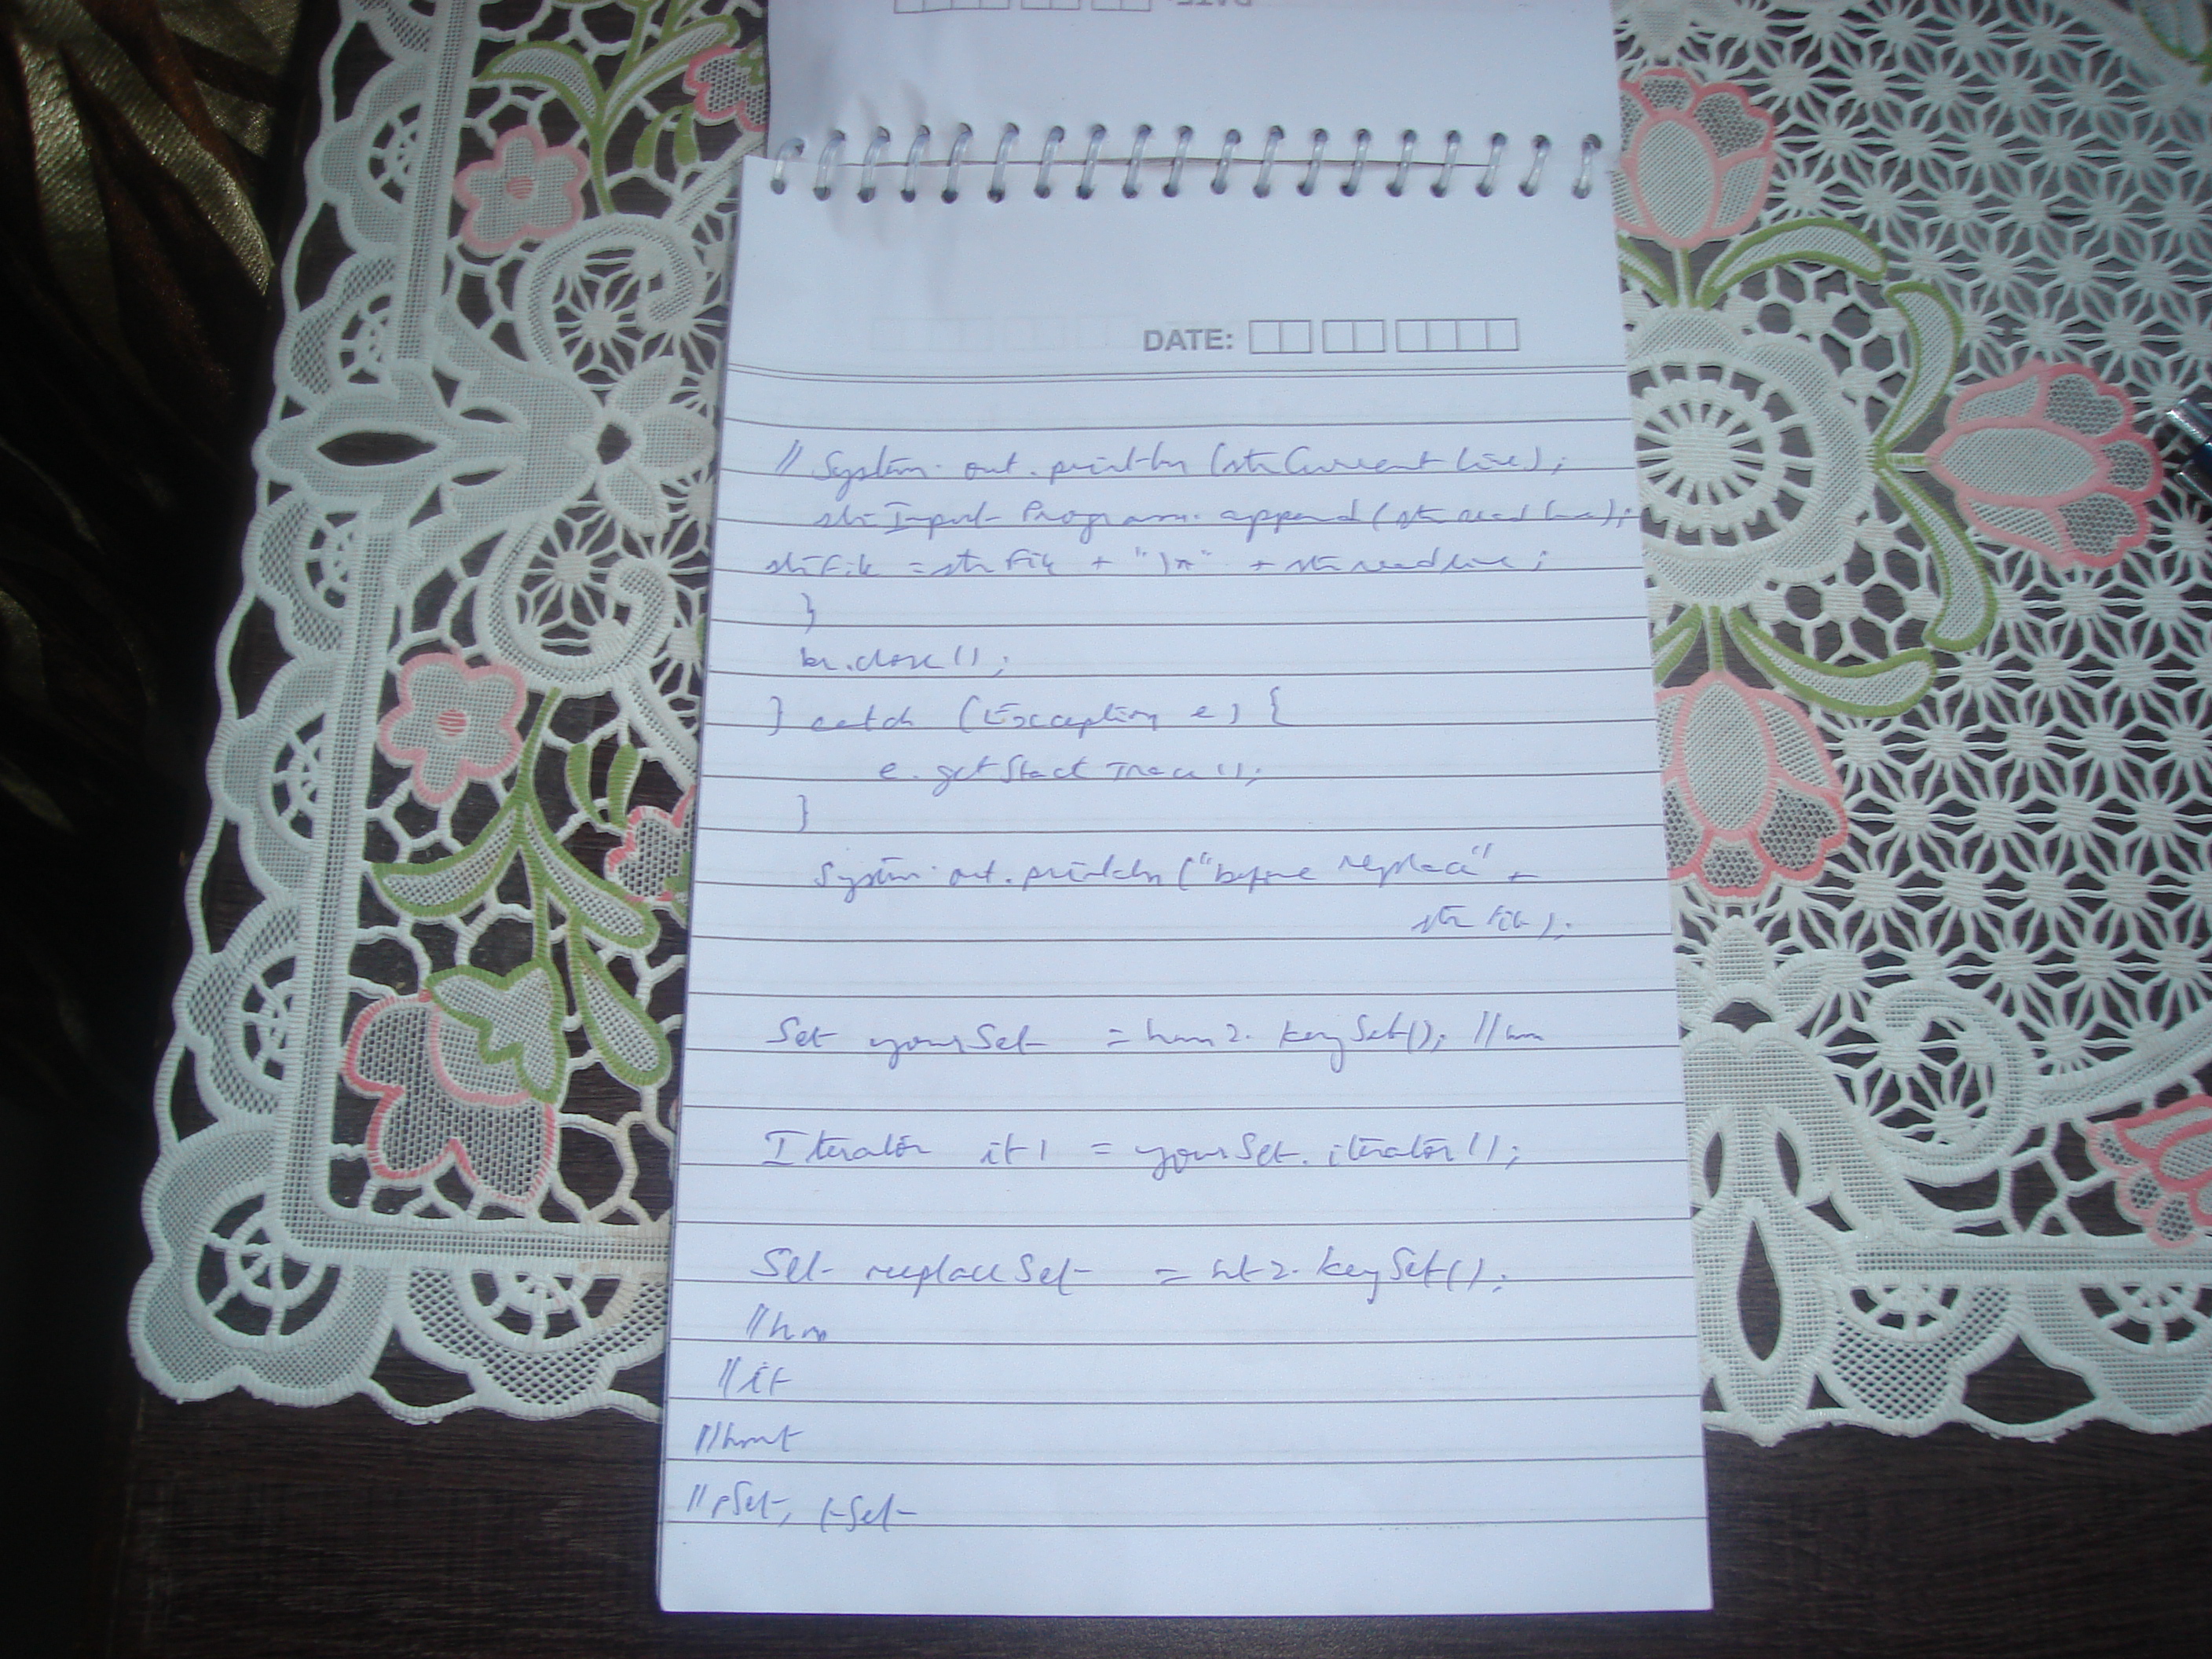 DATE:
// System.out.println(strCurrentLine);
strInputProgram.append(strreadline);
strFile = strFile + "\n" + strreadline;
}
br.close();
} catch (Exception e) {
e.getStackTrace();
}
System.out.println("before replace" +
strFile);
Set yourSet = hm2.keySet(); //hm
Iterator it1 = yourSet.iterator();
Set replaceSet = ht2.keySet();
//hm
//it
//hmt
//pSet, tSet